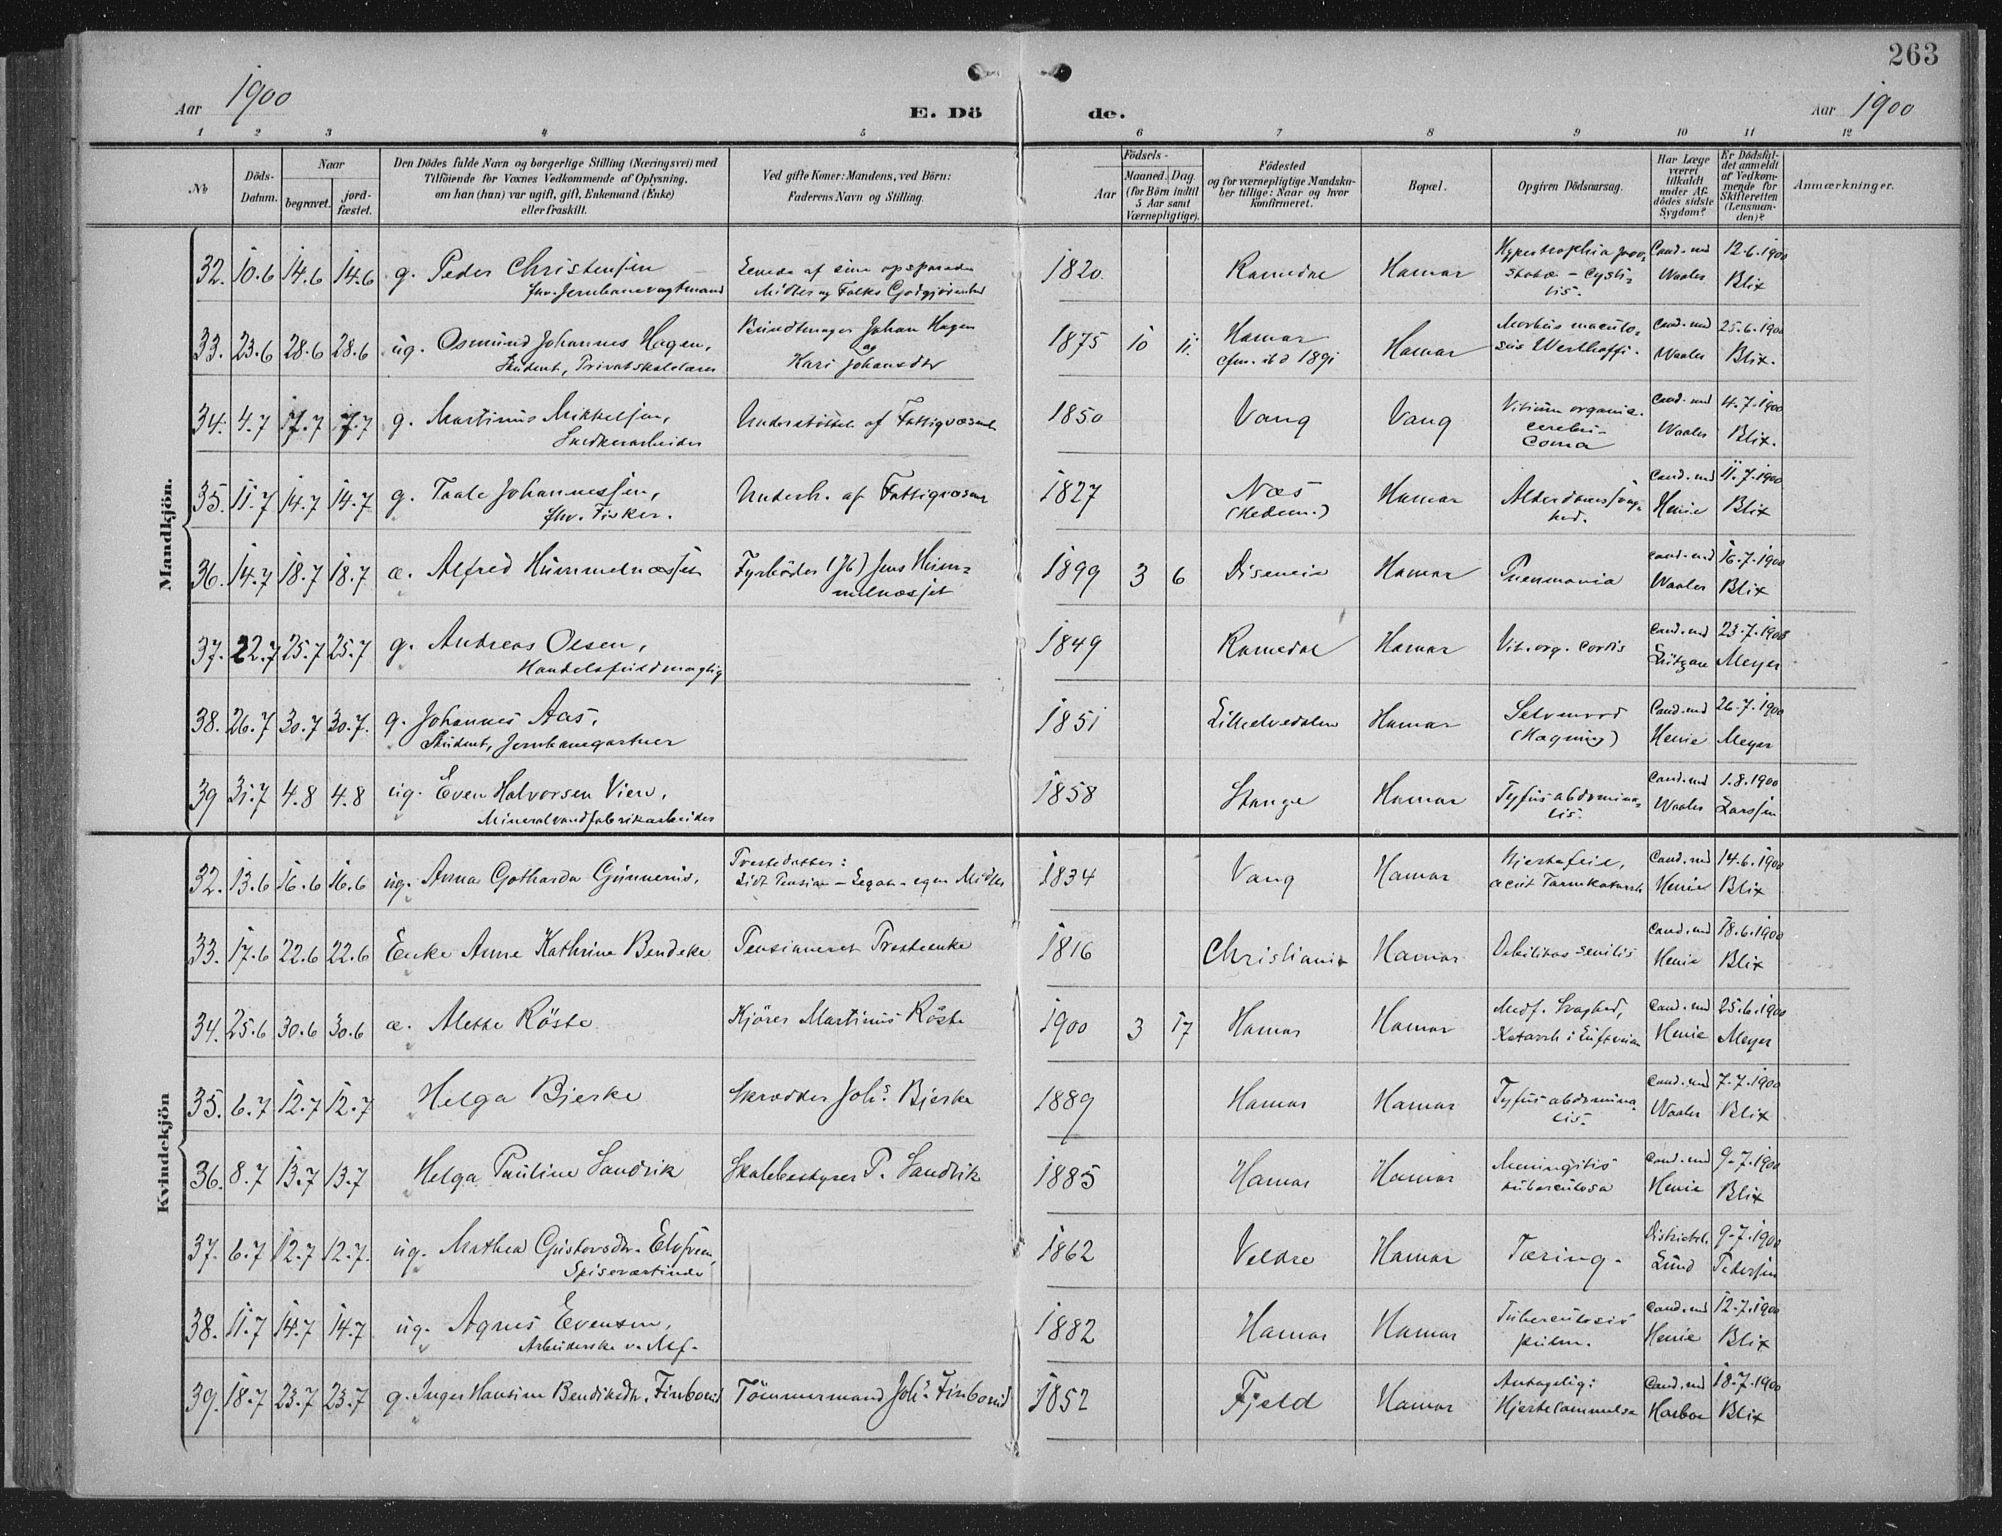 263
Aar 1900
E. Dö de.
Aar 1900
1 2 3 4 5 6 7 8 9 10 11 12
No
Döds-Datum.
Naar
begravet.
jord-fæstet.
Den Dödes fulde Navn og borgerlige Stilling (Næringsvei) med
Tilföiende for Voxnes Vedkommende af Oplysning.
om han (hun) var ugift, gift, Enkemand (Enke)
eller fraskilt.
Ved gifte Koner: Mandens, ved Börn:
Faderens Navn og Stilling.
Födsels-
Aar
Maaned. Dag.
(for Börn indtil
5 Aar samt
Værnepligtige).
Födested
og for værnepligtige Mandskaber tillige: Naar og hvor
konfirmeret.
Bopæl.
Opgiven Dödsaarsag.
Har Læge
været
tilkaldt
under Afdödes sidste
Sygdom?
Er Dödsfaldet anmeldt
af Vedkommende for
Skifteretten
(Lensmanden)?
Anmærkninger.
Mandkjön.
32. 10.6 14.6 14.6 g. Peder Christensen fhv. Jernbanevagtmand Levede af sine opsparede Midler og Folks Godgjörenhed 1820. Romedal Hamar Hypertrophia prostatæ – cystitis. Cand. med Waaler 12.6.1900 Blix
33. 23.6 28.6 28.6 ug. Osmund Johannes Hagen, Student, Privatskolelærer Bundtmager Johan Hagen og Kari Johansdtr 1875 10 11. Hamar cfm. ibd 1891 Hamar Morbus maculosus Werlhoffi. Cand. med Waaler 25.6.1900 Blix.
34. 4.7 17.7 17.7 g. Martinus Mikkelsen, Snedkerarbeider Understöttet af Fattigvæsenet 1850 Vang Vang Vitium organic. cerebri – Coma Cand. med Waaler 4.7.1900 Blix.
35. 11.7 14.7 14.7 g. Taale Johannessen, fhv. Fisker. Underh. af Fattigvæsen 1827 Næs (Hedem.) Hamar Alderdomssvaghed. Cand. med Henie 11.7.1900 Blix
36. 14.7 18.7 18.7 æ. Alfred Hummelnæsset Fyrböder (Jb) Jens Hummelnæsset 1899 3 6 Disenein Hamar Pneumonia Cand. med Waaler 16.7.1900 Blix
37. 22.7 25.7 25.7 g. Andreas Olsen, Handelsfuldmægtig 1849 Romedal Hamar Vit. org. cordis Cand. med 23.7.1900 Meyer
38. 26.7 30.7 30.7. g. Johannes Aas, Student, Jernbanegartner 1851 Lilleelvedalen Hamar Selvmord (Hægning) Cand. med Henie 26.7.1900 Meyer
39 31.7 4.8 4.8 ug. Even Halvorsen Vien, Mineralvandfabrikarbeider 1858 Stange Hamar Tyfus abdominalis. Cand. med Waaler 1.8.1900 Larssen
Kvindekjön
32. 13.6 16.6 16.6 ug. Anna Gotharda Gunnerus, Prestedatter: Lidt Pension – Legat – egne Midler 1834 Vang Hamar Hjertefeil, acut Tarmkatarrh Cand. med Henie 14.6.1900 Blix
33. 17.6 22.6 22.6 Enke Anne Kathrine Bendeke Pensioneret Presteenke 1816 Christiania Hamar Debilitas senilis Cand. med Henie 18.6.1900 Blix
34. 25.6 30.6 30.6 æ. Alette Röste Kjörer Martinus Röste 1900 3 17 Hamar Hamar Medf. Svaghed, Katarrh i Luftveiene Cand. med Henie 25.6.1900 Meyer
35. 6.7 12.7 12.7 Helga Bjerke Skrædder Johs. Bjerke 1889 Hamar Hamar Tyfus abdominalis. Cand. med Waaler 7.7.1900 Blix
36. 8.7 13.7 13.7 Helga Pauline Sandvik Skolebestyrer P. Sandvik 1885 Hamar Hamar Meningitis tuberculosa Cand. med Henie 9.7.1900 Blix
37. 6.7 12.7 12.7. ug. Mathea Gustavsdtr. Spiseværtinde 1862 Veldre Hamar Tæring. Districtsl. Lund 9.7.1900 Pedersen
38. 11.7 14.7 14.7 ug. Agnes Evensen, Arbeiderske v. Msf. 1882 Hamar Hamar Tuberculosis pulm. Cand. med Henie 12.7.1900 Blix
39. 18.7 23.7 23.7 g. Inger Hansine Bendiksdtr. Finborud Tömmermand Johs. Finborud 1852 Fjeld Hamar Antagelig: Hjertelammelse Cand. med Harboe 18.7.1900 Blix